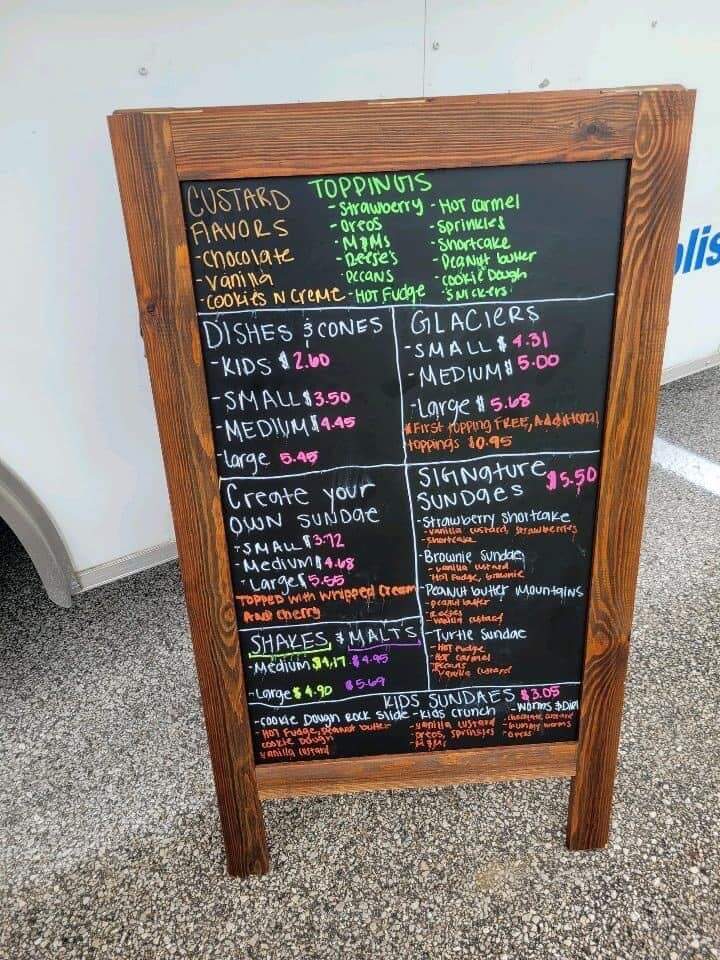 CUSTARD
FLAVORS
- Chocolate
- Vanilla
- Cookies N Creme
TOPPINGS
- Strawberry
- Oreos
- M&Ms
- Reese's
- Pecans
- Hot Fudge
- Hot Carmel
- Sprinkles
- Shortcake
- Peanut butter
- Cookie Dough
- Snickers
DISHES & CONES
- KIDS $2.60
- SMALL $3.50
- MEDIUM $4.45
- Large 5.45
GLACIERS
- SMALL $4.31
- MEDIUM $5.00
- Large $5.68
*First topping FREE, Additional
toppings $0.95
Create your
OWN SUNDAE
- SMALL $3.72
- Medium $4.68
- Large $5.55
TOPPED with whipped cream
and cherry
SIGNature $5.50
SUNDAES
- Strawberry Shortcake
- Vanilla custard, strawberries
- shortcake
- Brownie Sundae
- Vanilla custard
- Hot Fudge, brownie
- Peanut butter Mountains
- Peanut butter
- Reeses
- Vanilla custard
- Turtle Sundae
- Hot Fudge
- Hot carmel
- Pecans
- Vanilla custard
SHAKES & MALTS
- Medium $4.17 $4.95
- Large $4.90 $5.69
KIDS SUNDAES $3.05
- Cookie Dough Rock Slide
- Hot Fudge, Peanut butter
cookie Dough
vanilla custard
- Kids crunch
- Vanilla custard
- Oreos, sprinkles
- M&Ms
- Worms & Dirt
- chocolate custard
- Gummy worms
- Oreos
olis